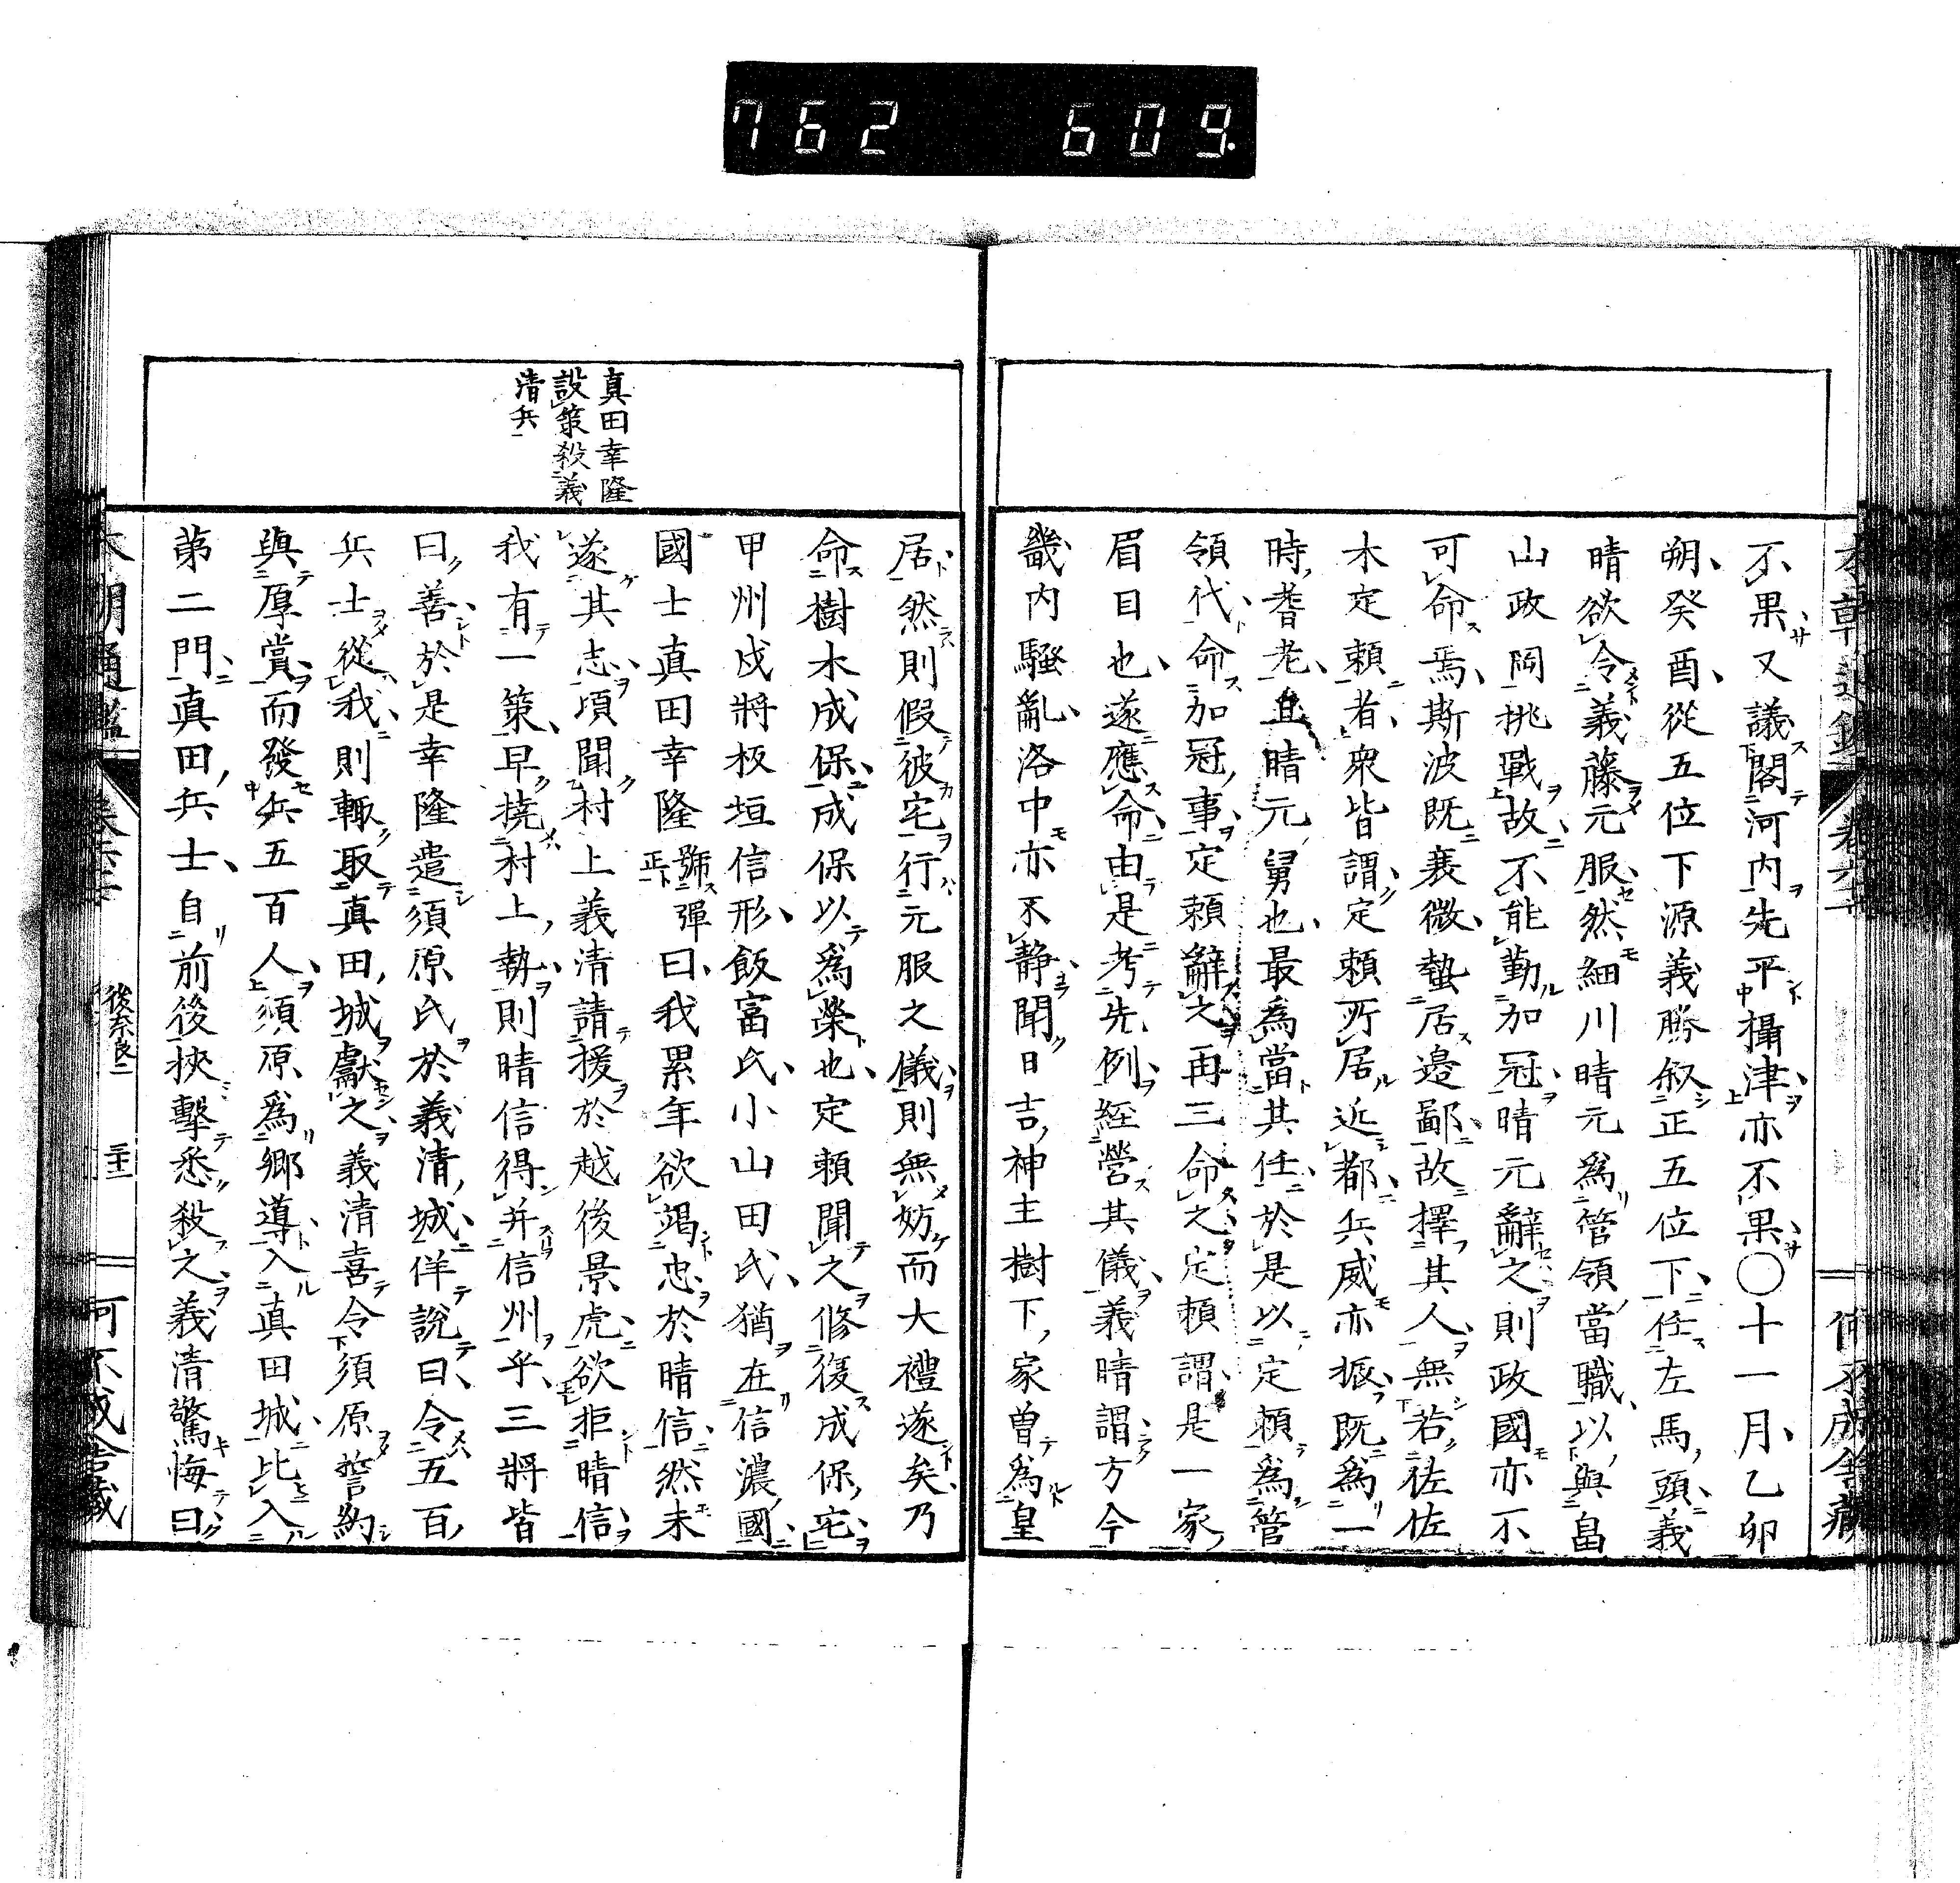 762 609.
不果又議閣河内先平攝津亦不果〇十一月乙卯
朔癸酉從五位下源義勝叙正五位下任左馬頭義
晴欲令義藤元服然細川晴元爲管領當職以與畠
山政國挑戰故不能勤加冠晴元辭之則政國亦不
可命焉斯波既衰微蟄居邊鄙故擇其人無若佐佐
木定頼者衆皆謂定頼所居近都兵威亦振既爲一
時耆老且晴元舅也最爲當其任於是以定頼爲管
領代命加冠事定頼辭之再三命之定頼謂是一家
眉目也遂應命由是考先例經營其儀義晴謂方今
畿内騷亂洛中亦不靜聞日吉神主樹下家曾爲皇
真田幸隆
設策殺義
清兵
居然則假彼宅行元服之儀則無妨而大禮遂矣乃
命樹木成保成保以爲榮也定頼聞之修復成保宅
甲州戍將板垣信形飯富氏小山田氏猶在信濃國
國士真田幸隆號彈正曰我累年欲竭忠於晴信然未
遂其志頃聞村上義清請援於越後景虎欲拒晴信
我有一策早撓村上勢則晴信得并信州乎三將皆
曰善於是幸隆遣須原氏於義清城佯說曰令五百
兵士從我則輙取真田城獻之義清喜令須原誓約
與厚賞而發兵五百人須原爲鄉導入真田城比入
第二門真田兵士自前後挾擊悉殺之義清驚悔曰
後奈良二